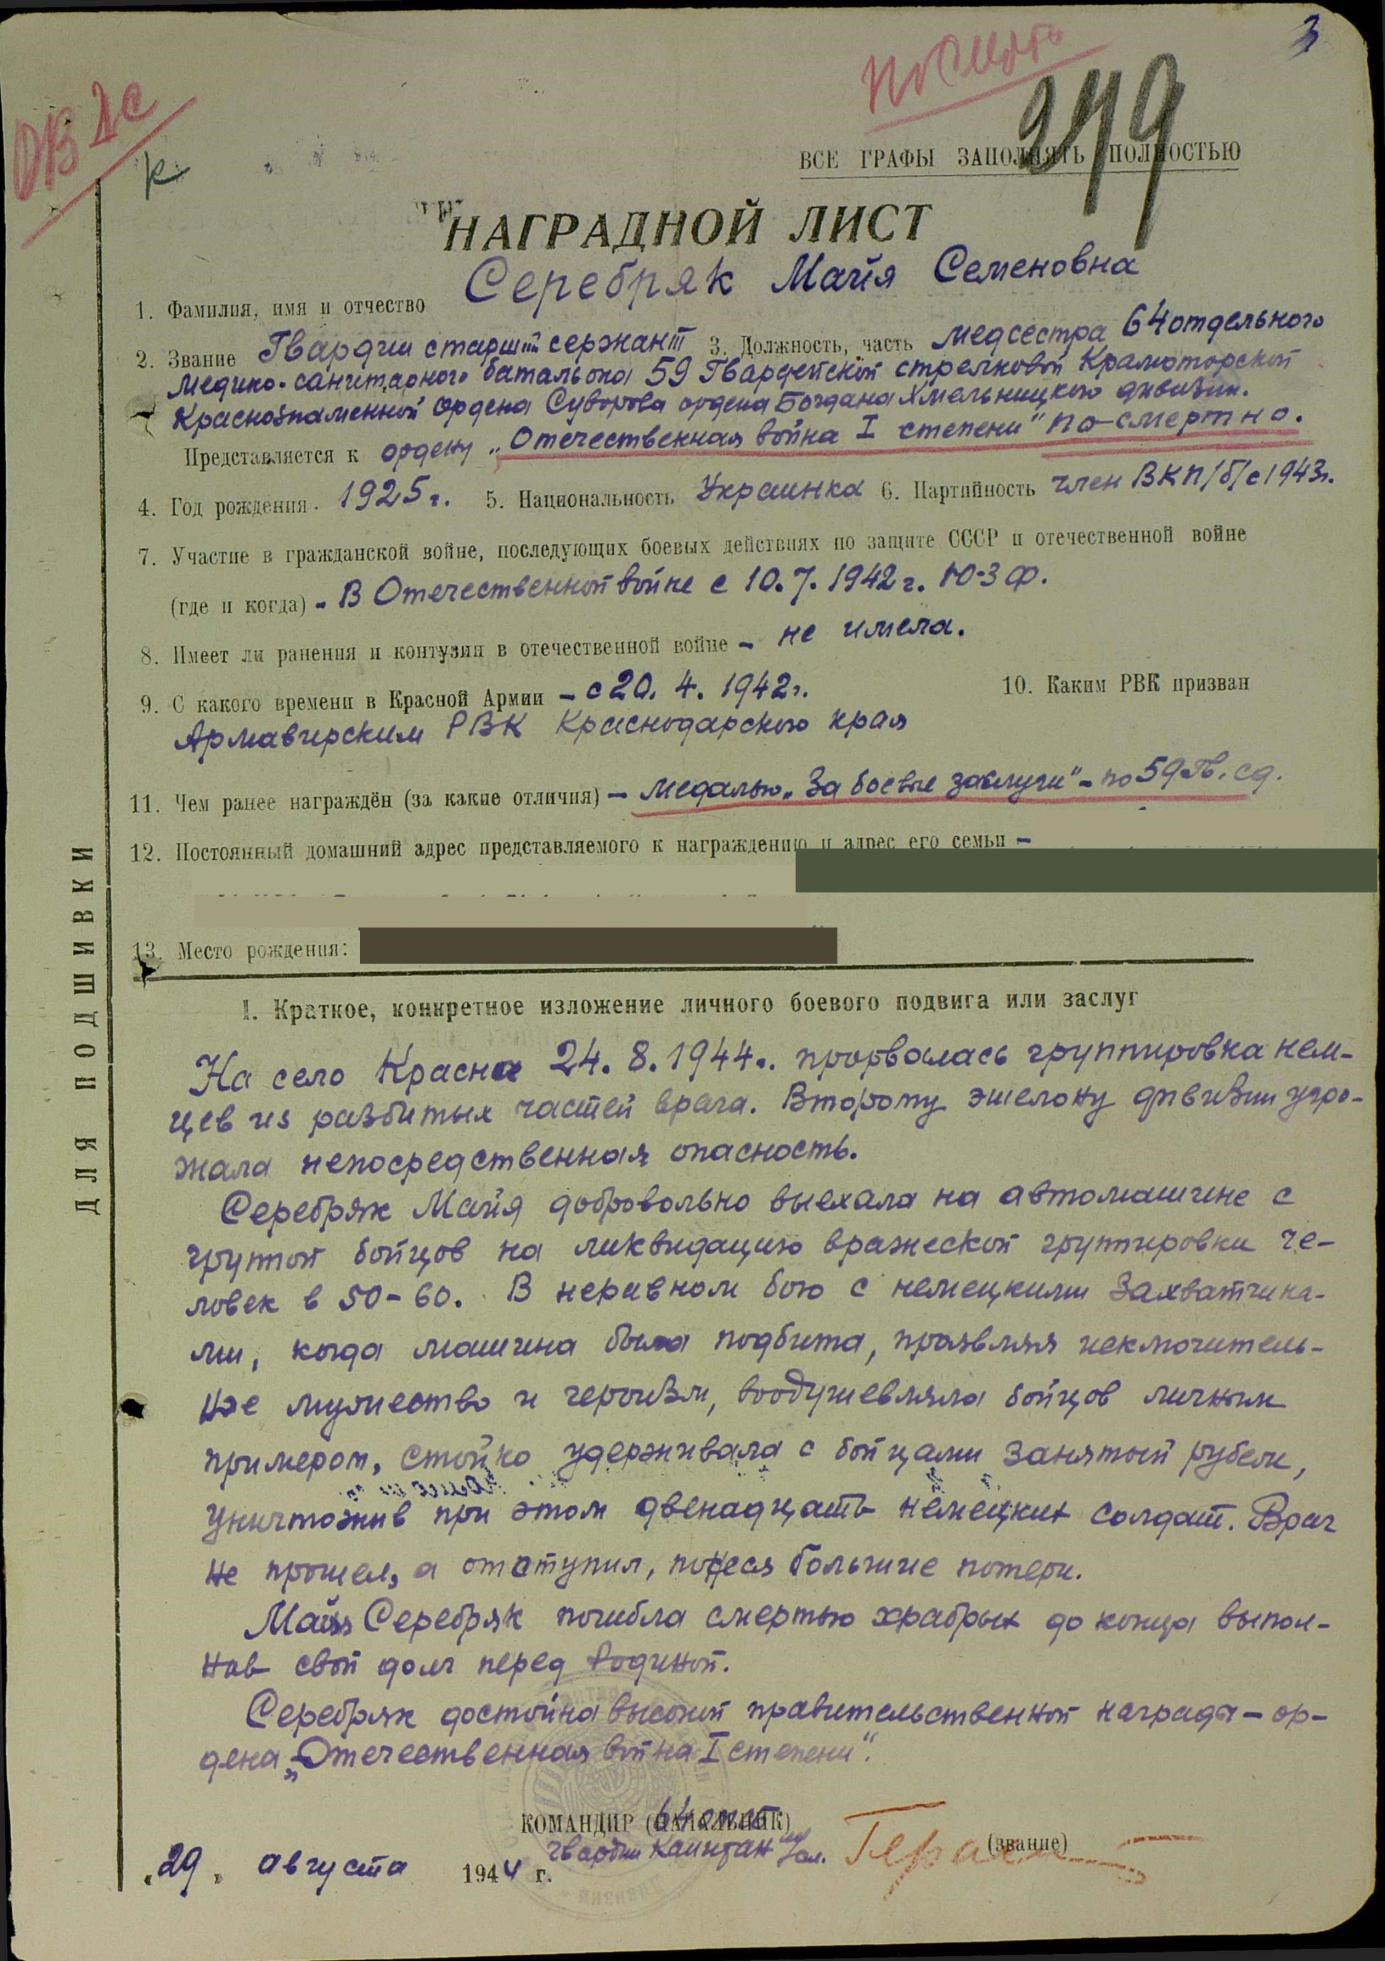 3
посмерть
ОВ 1с
к
249
ВСЕ ГРАФЫ ЗАПОЛНЯТЬ ПОЛНОСТЬЮ
НАГРАДНОЙ ЛИСТ
1. Фамилия, имя и отчество Серебряк Майя Семеновна
2. Звание Гвардии старший сержант 3. Должность, часть медсестра 64 отдельного
медико-санитарного батальона 59 Гвардейской стрелковой Краматорской
Краснознаменной ордена Суворова ордена Богдана Хмельницкого дивизии.
Представляется к ордену „Отечественная война I степени" по-смертно.
4. Год рождения. 1925 г. 5. Национальность Украинка 6. Партийность член ВКП/б/ с 1943г.
7. Участие в гражданской войне, последующих боевых действиях по защите СССР и отечественной войне
(где и когда) - В Отечественной войне с 10.7.1942 г. Ю-З ф.
8. Имеет ли ранения и контузии в отечественной войне - не имела.
9. С какого времени в Красной Армии - с 20.4.1942г. 10. Каким РВК призван
Армавирским РВК Краснодарского края
11. Чем ранее награждён (за какие отличия) - медалью „За боевые заслуги" - по 59 Гв. сд.
12. Постоянный домашний адрес представляемого к награждению и адрес его семьи -
13. Место рождения:
ДЛЯ ПОДШИВКИ
I. Краткое, конкретное изложение личного боевого подвига или заслуг
На село Красна 24.8.1944г. прорвалась группировка нем-
цев из разбитых частей врага. Второму эшелону дивизии угро-
жала непосредственная опасность.
Серебряк Майя добровольно выехала на автомашине с
группой бойцов на ликвидацию вражеской группировки че-
ловек в 50-60. В неравном бою с немецкими захватчика-
ми, когда машина была подбита, проявляя исключитель-
ное мужество и героизм, воодушевляла бойцов личным
примером, стойко удерживала с бойцами занятый рубеж,
уничтожив при этом двенадцать немецких солдат. Враг
не прошел, а отступил, понеся большие потери.
Майя Серебряк погибла смертью храбрых до конца выпол-
нив свой долг перед Родиной.
Серебряк достойна высокой правительственной награды - ор-
дена „Отечественная война I степени".
КОМАНДИР (НАЧАЛЬНИК)
гвардии капитан
(звание)
„29" августа 1944 г.